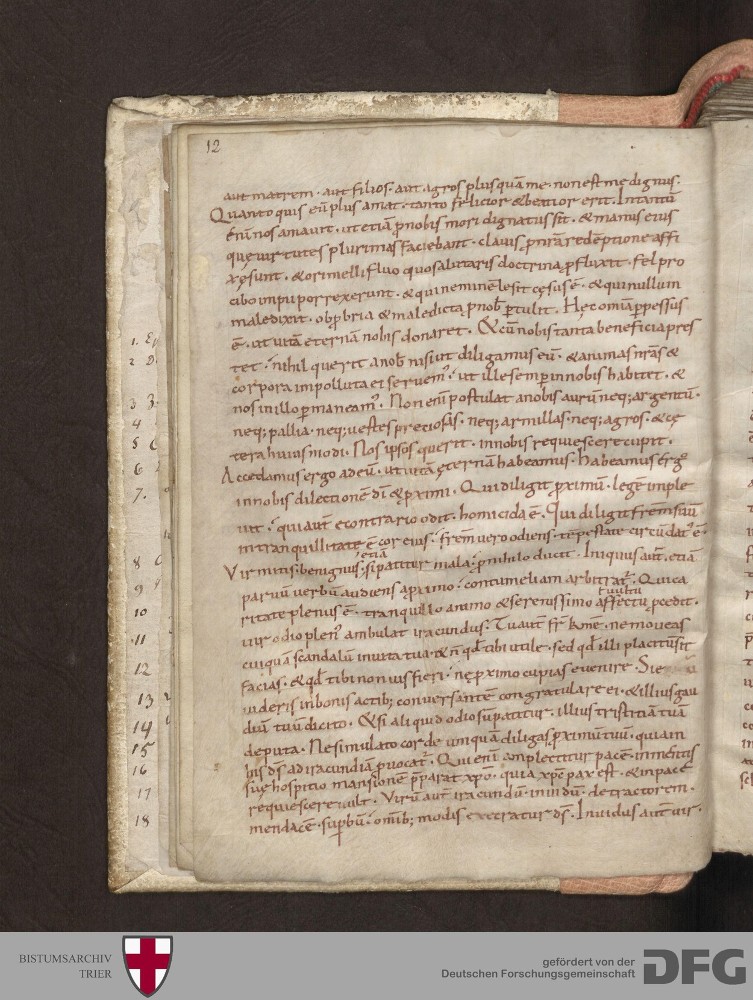 12
aut matrem · aut filios · aut agros plus quā me · non est me dignus ·
Quanto quis eū plus amat · tanto felicior & beatior erit · In tantū
eni nos amavit · ut etiā p nobis mori dignatus sit · & manus eius
quę virtutes plurimas faciebant · clavis p nr̄a redēptione affi
xę sunt · & ori mellifluo quo salutaris doctrina pfluxit · fel pro
cibo impii porrexerunt · & qui neminē lesit cęsus ē · & qui nullum
maledixit · obp bria & maledicta p nob ptulit · Hęc omīa ppessus
ē · ut vitā eternā nobis donaret · & cū nobis tanta beneficia pres
tet · nihil querit a nob nisi ut diligamus eū · & animas nr̄as &
corpora impolluta ei servem' · ut ille semp in nobis habitet · &
nos in illo pmaneam' · Non enī postulat a nobis aurū neq; argentū ·
neq; pallia · neq; vestes preciosas · neq; armillas · neq; agros · & cę
tera huiusmodi · Nos ipsos querit · in nobis requiescere cupit ·
Accedamus ergo ad eū · ut vitā ęternā habeamus · habeamus ergo
in nobis dilectionē dī & pximi · Qui diligit pximū · legē imple
vit · qui aut̄ e contrario odit · homicida ē · Qui diligit frem suū
in tranquillitate ē cor eius · frem vero odiens · tēpestate circūdat' ē ·
etiā
Vir mitis · benignus · si patitur mala · p nihilo ducit · Iniquus aut̄ · etiā
parvū verbū audiens a pximo · contumeliam arbitrat' · Qui ca
t vultu
ritate plenus ē · tranquillo animo & serenissimo affectu pcedit ·
vir odio plen' ambulat iracundus · Tu aut̄ fr̄ kme · ne moveas
cuiquā scandalū in vita tua · & n̄ qd tibi utile · sed qd illi placitū sit
facias · & qd tibi non vis fieri · ne pximo cupias evenire · Si e
videris in bonis actib; conversantē congratulare ei · & illius gau
diū tuū dicito · & si aliquid odiosū patitur · illius tristitiā tuā
deputa · Ne simulato corde umquā diligas pximū tuū · quia in
his ds̄ ad iracundiā pvocat' · Qui enī amplectitur pacē · in mentis
suę hospitio mansionē pparat xp̄o · quia xp̄c pax est · & in pace
requiescere vult · Virū aut̄ iracundū · invidū · detractorem ·
mendacē · supbū · omīb; modis execratur ds̄ · Invidus aut̄ vir ·
1.
2
3
4
5
6
7.
8
9
10
11
12
13
14
15
16
17
18
BISTUMSARCHIV
TRIER
gefördert von der
Deutschen Forschungsgemeinschaft
DFG